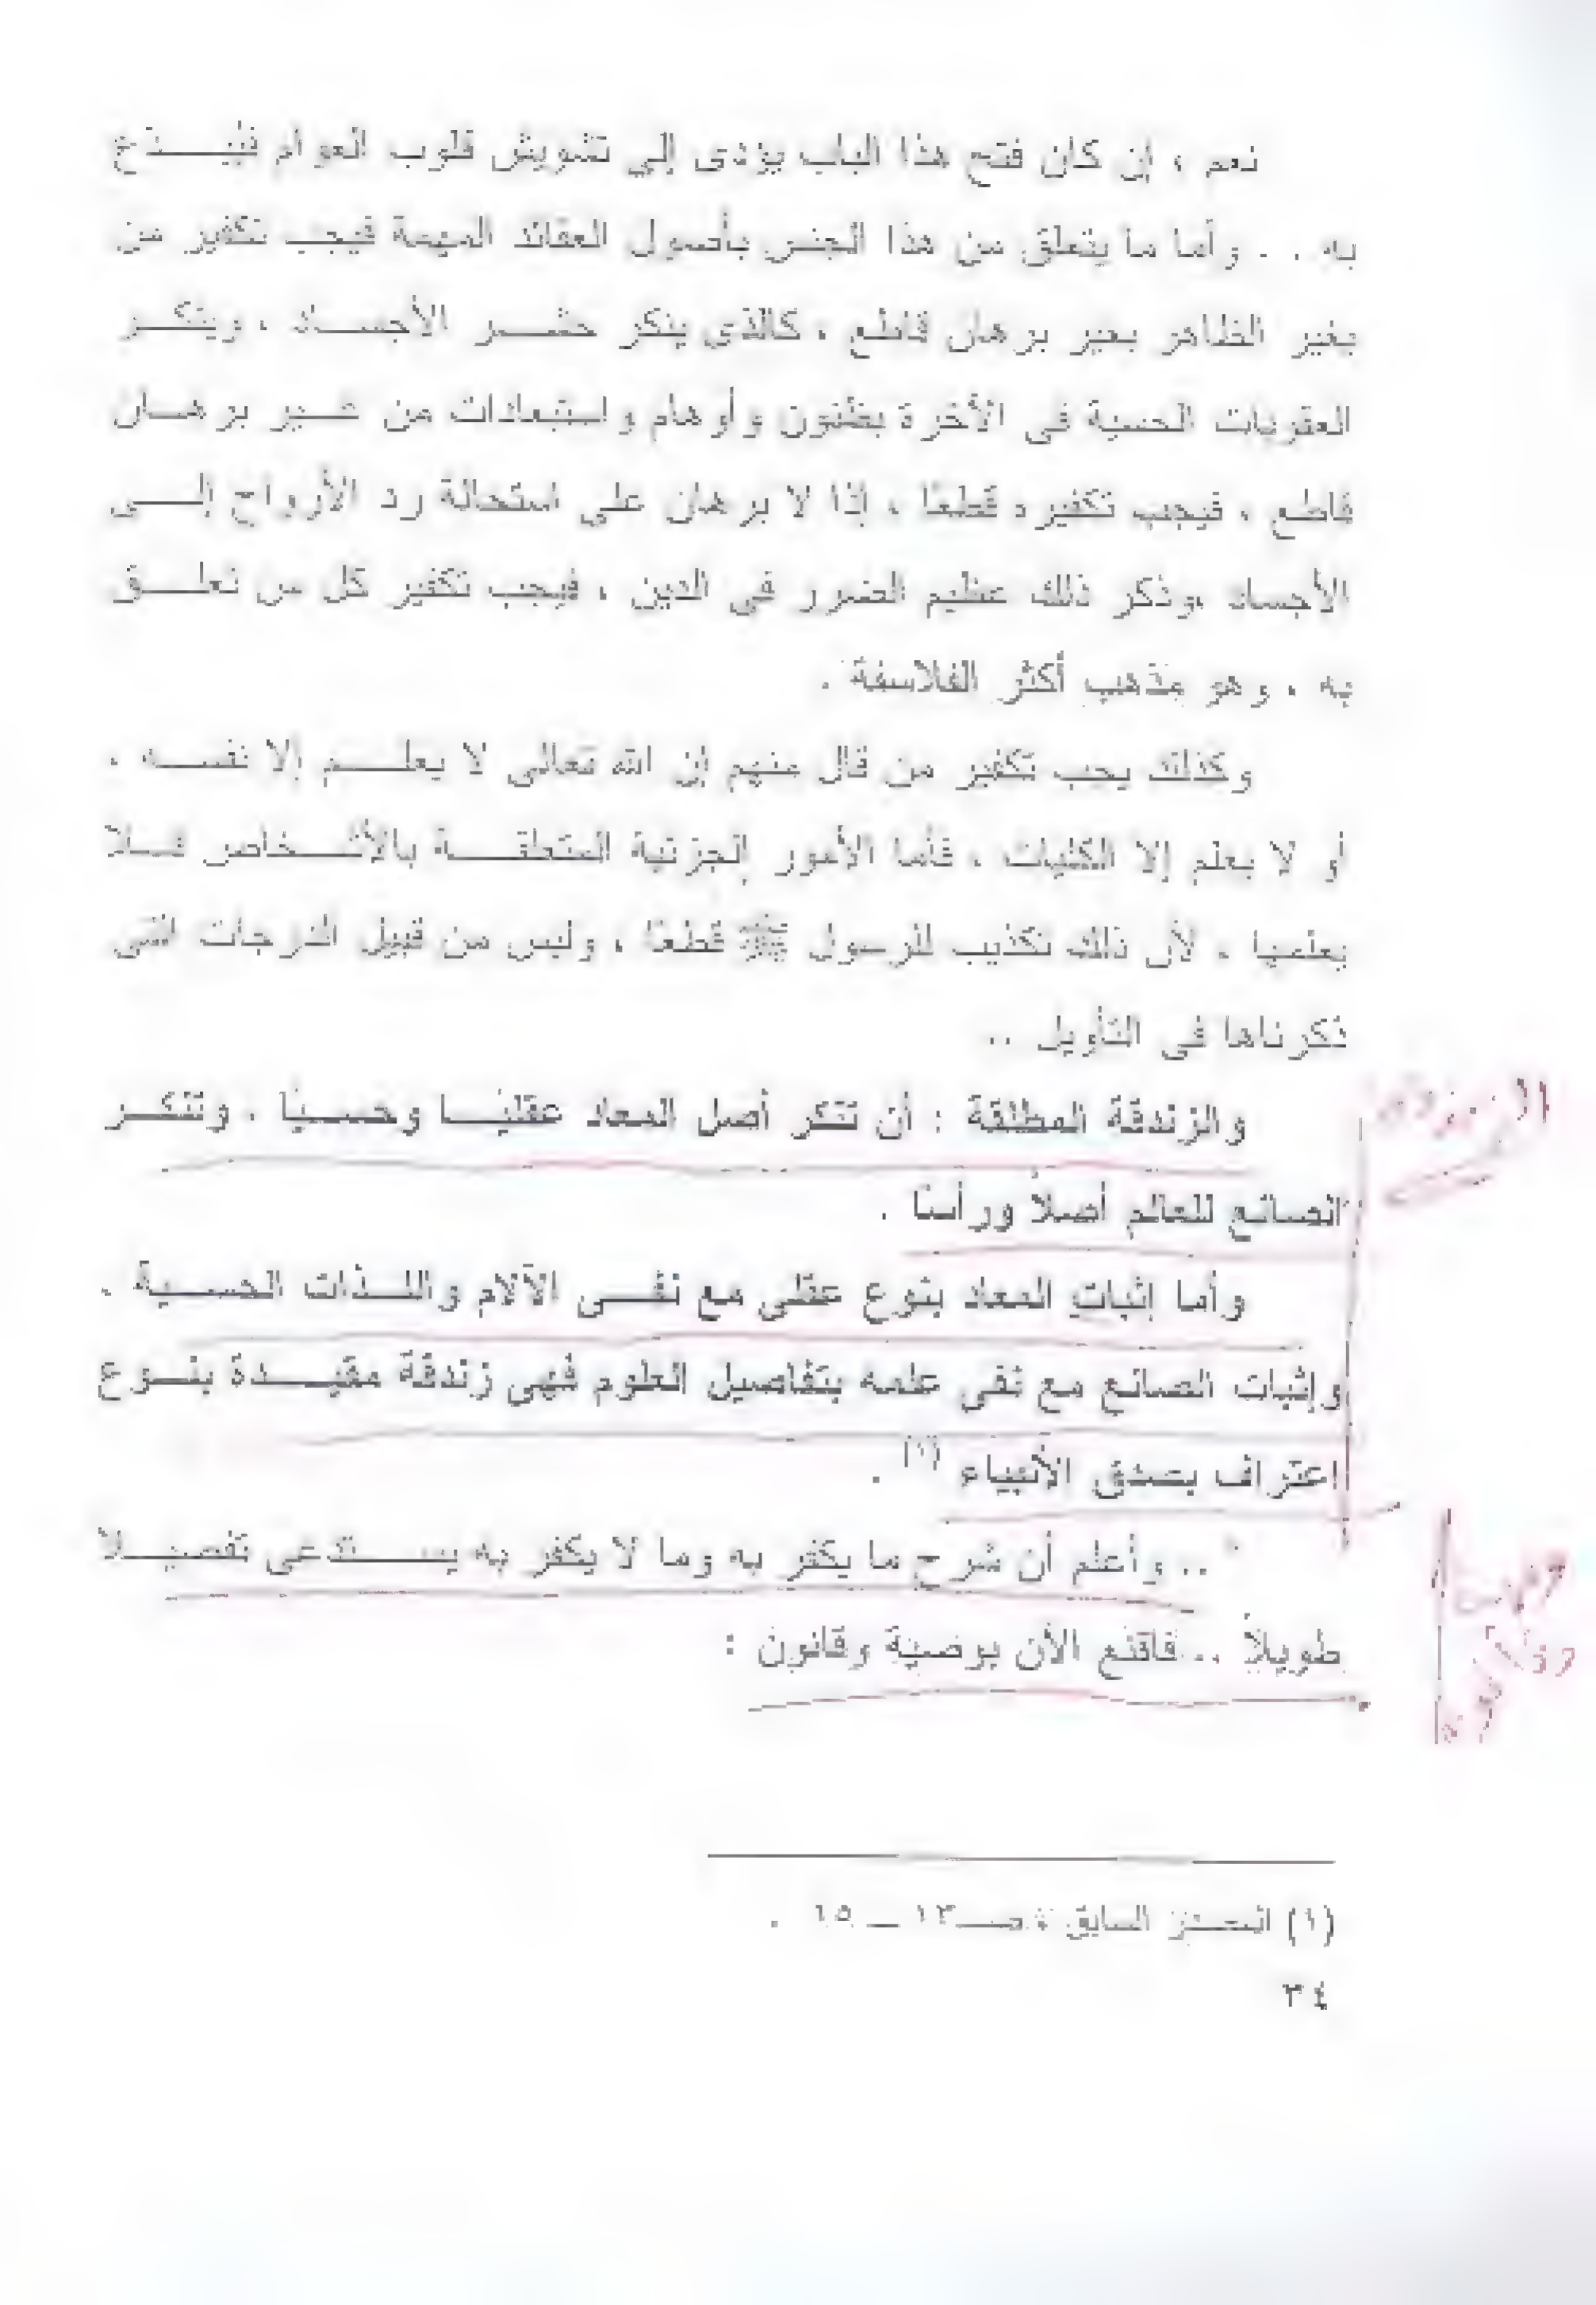 نعم ، إن كان فتح هذا الباب يؤدى إلي تشويش قلوب العوام فيبدع
به . . وأما ما يتعلق من هذا الجنس بأصول العقائد المهمة فيجب تكفير من
يغير الظاهر بغير برهان قاطع ، كالذى ينكر حشر الأجساد ، وينكر
العقوبات الحسية فى الأخرة بظنون وأوهام واستبعادات من غير برهان
قاطع ، فيجب تكفيره قطعًا ، إذا لا برهان على استحالة رد الأرواح إلى
الأجساد ،وذكر ذلك عظيم الضرر فى الدين ، فيجب تكفير كل من تعلق
به ، وهو مذهب أكثر الفلاسفة .
وكذلك يجب تكفير من قال منهم إن الله تعالى لا يعلم إلا نفسه ،
أو لا يعلم إلا الكليات ، فأما الأمور الجزئية المتعلقة بالأشخاص فلا
يعلمها ، لأن ذلك تكذيب للرسول ﷺ قطعًا ، وليس من قبيل الدرجات التى
ذكرناها فى التأويل ..
والزندقة المطلقة : أن تنكر أصل المعاد عقليًا وحسيًا ، وتنكر
الصانع للعالم أصلاً ورأسًا .
وأما إثبات المعاد بنوع عقلى مع نفى الآلام واللذات الحسية ،
وإثبات الصانع مع نفى علمه بتفاصيل العلوم فهى زندقة مقيدة بنوع
اعتراف بصدق الأنبياء (١) .
.. وأعلم أن شرح ما يكفر به وما لا يكفر به يستدعى تفصيلاً
طويلاً .. فاقنع الأن بوصية وقانون :
(١) المصدر السابق : صـ١٣ ـ ١٥ .
٣٤